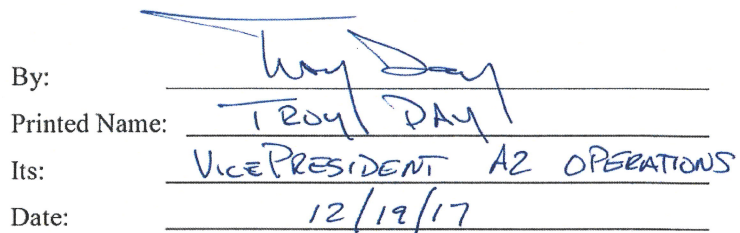 By: Troy Day
Printed Name: TROY DAY
Its: VICE PRESIDENT AZ OPERATIONS
Date: 12/19/17